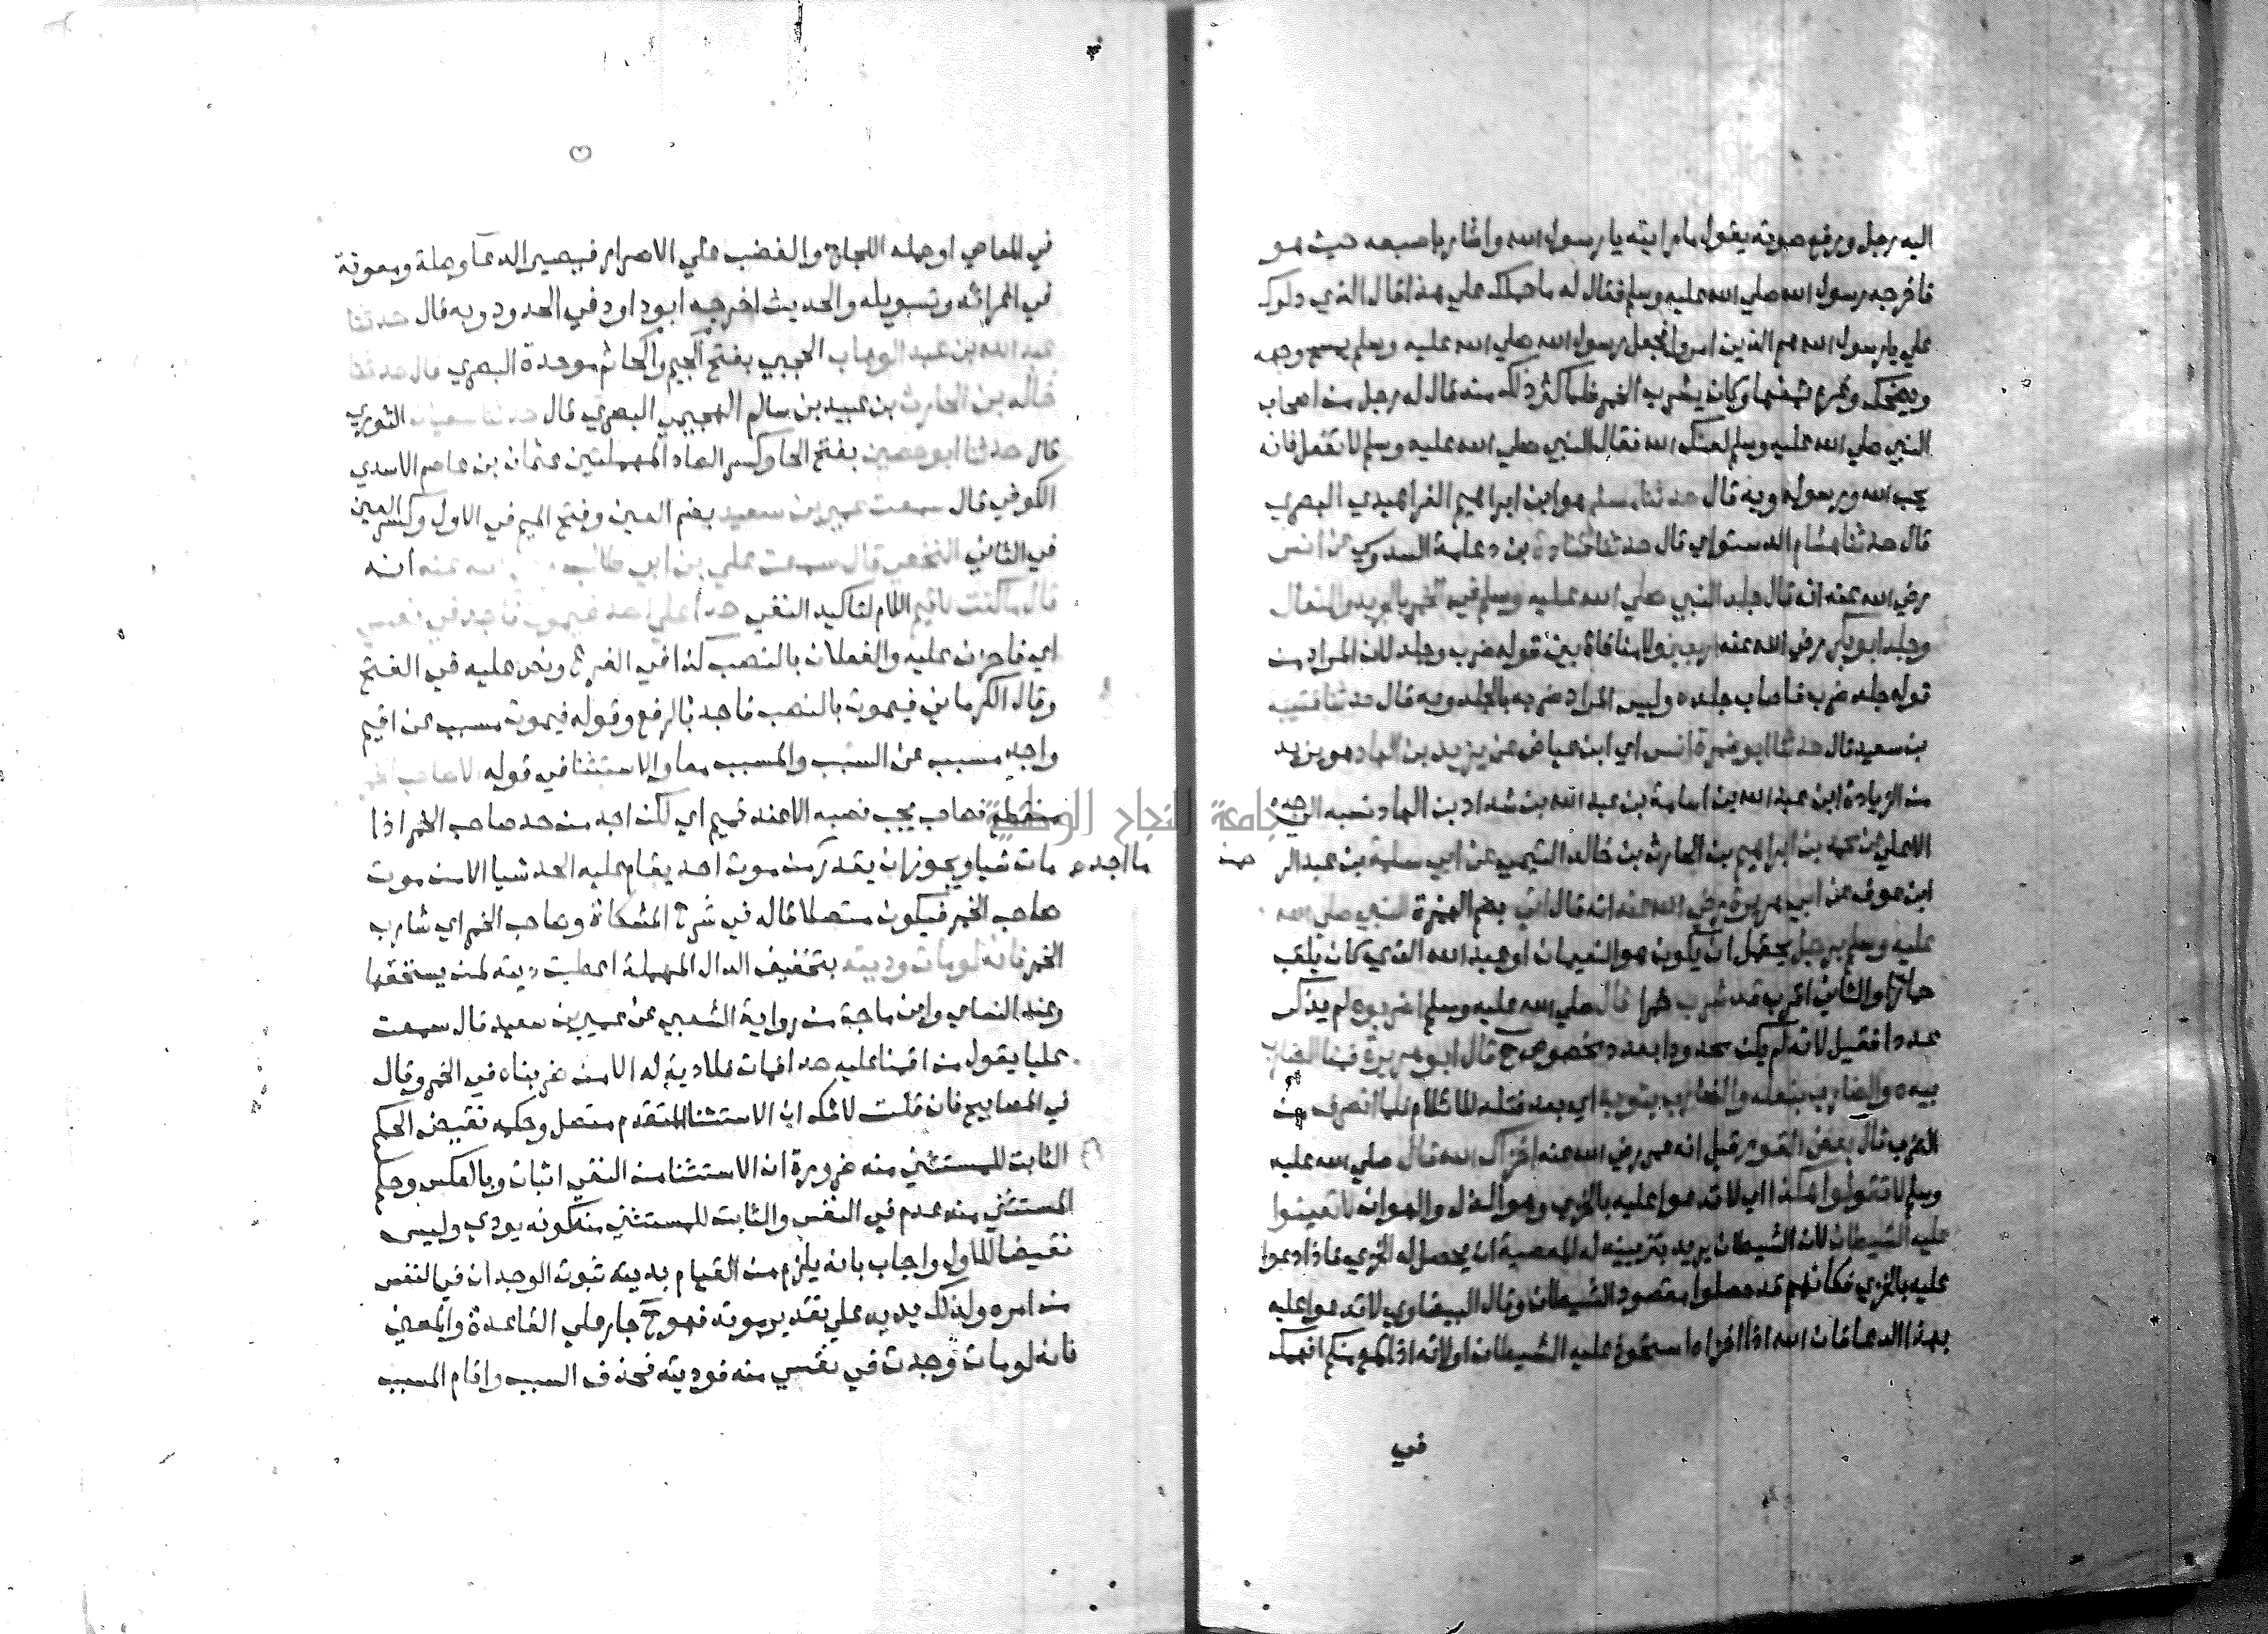 اليه رجل ورفع صوته يقول مارايته يا رسول الله واشار باصبعه حيث هو
فاخرجه رسول الله صلي الله عليه وسلم فقال له ما حملك علي هذا قال الذي دلوك
علي يا رسول الله هم الذين امروا فجعل رسول الله صلي الله عليه وسلم يمسح وجهه
ويضحك وكان يشرب الخمر فلما كثر ذلك منه قال له رجل من اصحاب
النبي صلي الله عليه وسلم لعنك الله فقال النبي صلي الله عليه وسلم لا تفعل فانه
يحب الله ورسوله وبه قال حدثنا مسلم هو ابن ابراهيم الفراهيدي البصري
قال حدثنا هشام الدستواي قال حدثنا قتادة بن دعامة السدوسي عن انس
رضي الله عنه انه قال جلد النبي صلي الله عليه وسلم في الخمر بالجريد والنعال
وجلد ابو بكر رضي الله عنه اربعين ولا منافاة بين قوله ضرب وجلد لان المراد من
قوله جلد ضرب فاصاب جلده وليس المراد ضربه بالجلد وبه قال حدثنا قتيبة
بن سعيد قال حدثنا ابو ضمرة انس اي ابن عياض عن يزيد بن الهاد هو يزيد
من الزيادة ابن عبد الله بن اسامة بن عبد الله بن شداد بن الهاد نسبه الي جده
الاعلي عن محمد بن ابراهيم بن الحارث بن خالد التيمي عن ابي سلمة بن عبد الرحمن
ابن عوف عن ابي هريرة رضي الله عنه انه قال اتي بضم الهمزة النبي صلي الله
عليه وسلم برجل يحتمل ان يكون هو النعيمان او عبد الله الذي كان يلقب
حمارا والثاني اقرب قد شرب خمرا قال صلي الله عليه وسلم اضربوه لم يذكر
عددا فقيل لانه لم يكن محدودا بعدد مخصوص ح قال ابو هريرة فمنا الضارب
بيده والضارب بنعله والضارب بثوبه اي بعد فتله للايلام فلما انصرف من
الضرب قال بعض القوم قيل انه عمر رضي الله عنه اخزاك الله قال صلي الله عليه
وسلم لا تقولوا هكذا اي لا تدعوا عليه بالخزي وهو الذل والهوان لا تعينوا
عليه الشيطان لان الشيطان يريد بتزيينه له المعصية ان يحصل له الخزي فاذا دعوا
عليه بالخزي فكانهم قد حصلوا مقصود الشيطان وقال البيضاوي لا تدعوا عليه
بهذا الدعا فان الله اذا اخزاه استحوذ عليه الشيطان او لانه اذا سمع منكم انهمك
في
في المعاصي او حمله اللجاج والغضب علي الاصرار فيصير الدعا وصلة ومعونة
في اغرائه وتسويله والحديث اخرجه ابو داود في الحدود وبه قال حدثنا
عبد الله بن عبد الوهاب الحجبي بفتح الجيم والحا ثم موحدة البصري قال حدثنا
خالد بن الحارث بن عبيد بن سالم الهجيمي البصري قال حدثنا سفيان الثوري
قال حدثنا ابو حصين بفتح الحا وكسر الصاد المهملتين عثمان بن عاصم الاسدي
الكوفي قال سمعت عمير بن سعيد بضم العين وفتح الميم في الاول وكسر العين
في الثاني النخعي قال سمعت علي بن ابي طالب رضي الله عنه انه
قال ما كنت لاقيم اللام لتاكيد النفي حدا علي احد فيموت فاجد في نفسي
اي فاحزن عليه والفعلان بالنصب كذا في الفرع ونص عليه في الفتح
وقال الكرماني فيموت بالنصب فاجد بالرفع وقوله فيموت مسبب عن اقيم
واجد مسبب عن السبب والمسبب معا والاستثنا في قوله الا صاحب الخمر
منقطع فصاحب يجب نصبه الا عند تميم اي لكن اجد من حد صاحب الخمر اذا
مات شيا ويجوز ان يقدر ما اجد من موت احد يقام عليه الحد شيا الا من موت
صاحب الخمر فيكون متصلا قاله في شرح المشكاة وصاحب الخمر اي شارب
الخمر فانه لو مات وديته بتخفيف الدال المهملة اعطيت ديته لمن يستحقها
وعند النساي وابن ماجة من رواية الشعبي عن عمير بن سعيد قال سمعت
عليا يقول من اقمنا عليه حدا فمات فلا دية له الا من ضربناه في الخمر وقال
في المصابيح فان قلت لا شك ان الاستثنا المتقدم متصل وحكمه نقيض الحكم
الثابت للمستثني منه ضرورة ان الاستثنا من النفي اثبات وبالعكس وحكم
المستثني منه عدم في النفس والثابت للمستثني منه كونه يودي وليس
نقيضا للاول واجاب بانه يلزم من القيام بديته ثبوت الوجدان في النفس
من امره ولذلك يديه علي تقدير موته فهو ح جار علي القاعدة والمعني
فانه لو مات وجدت في نفسي منه فوديته فحذف السبب واقام المسبب
جامعة النجاح الوطنية